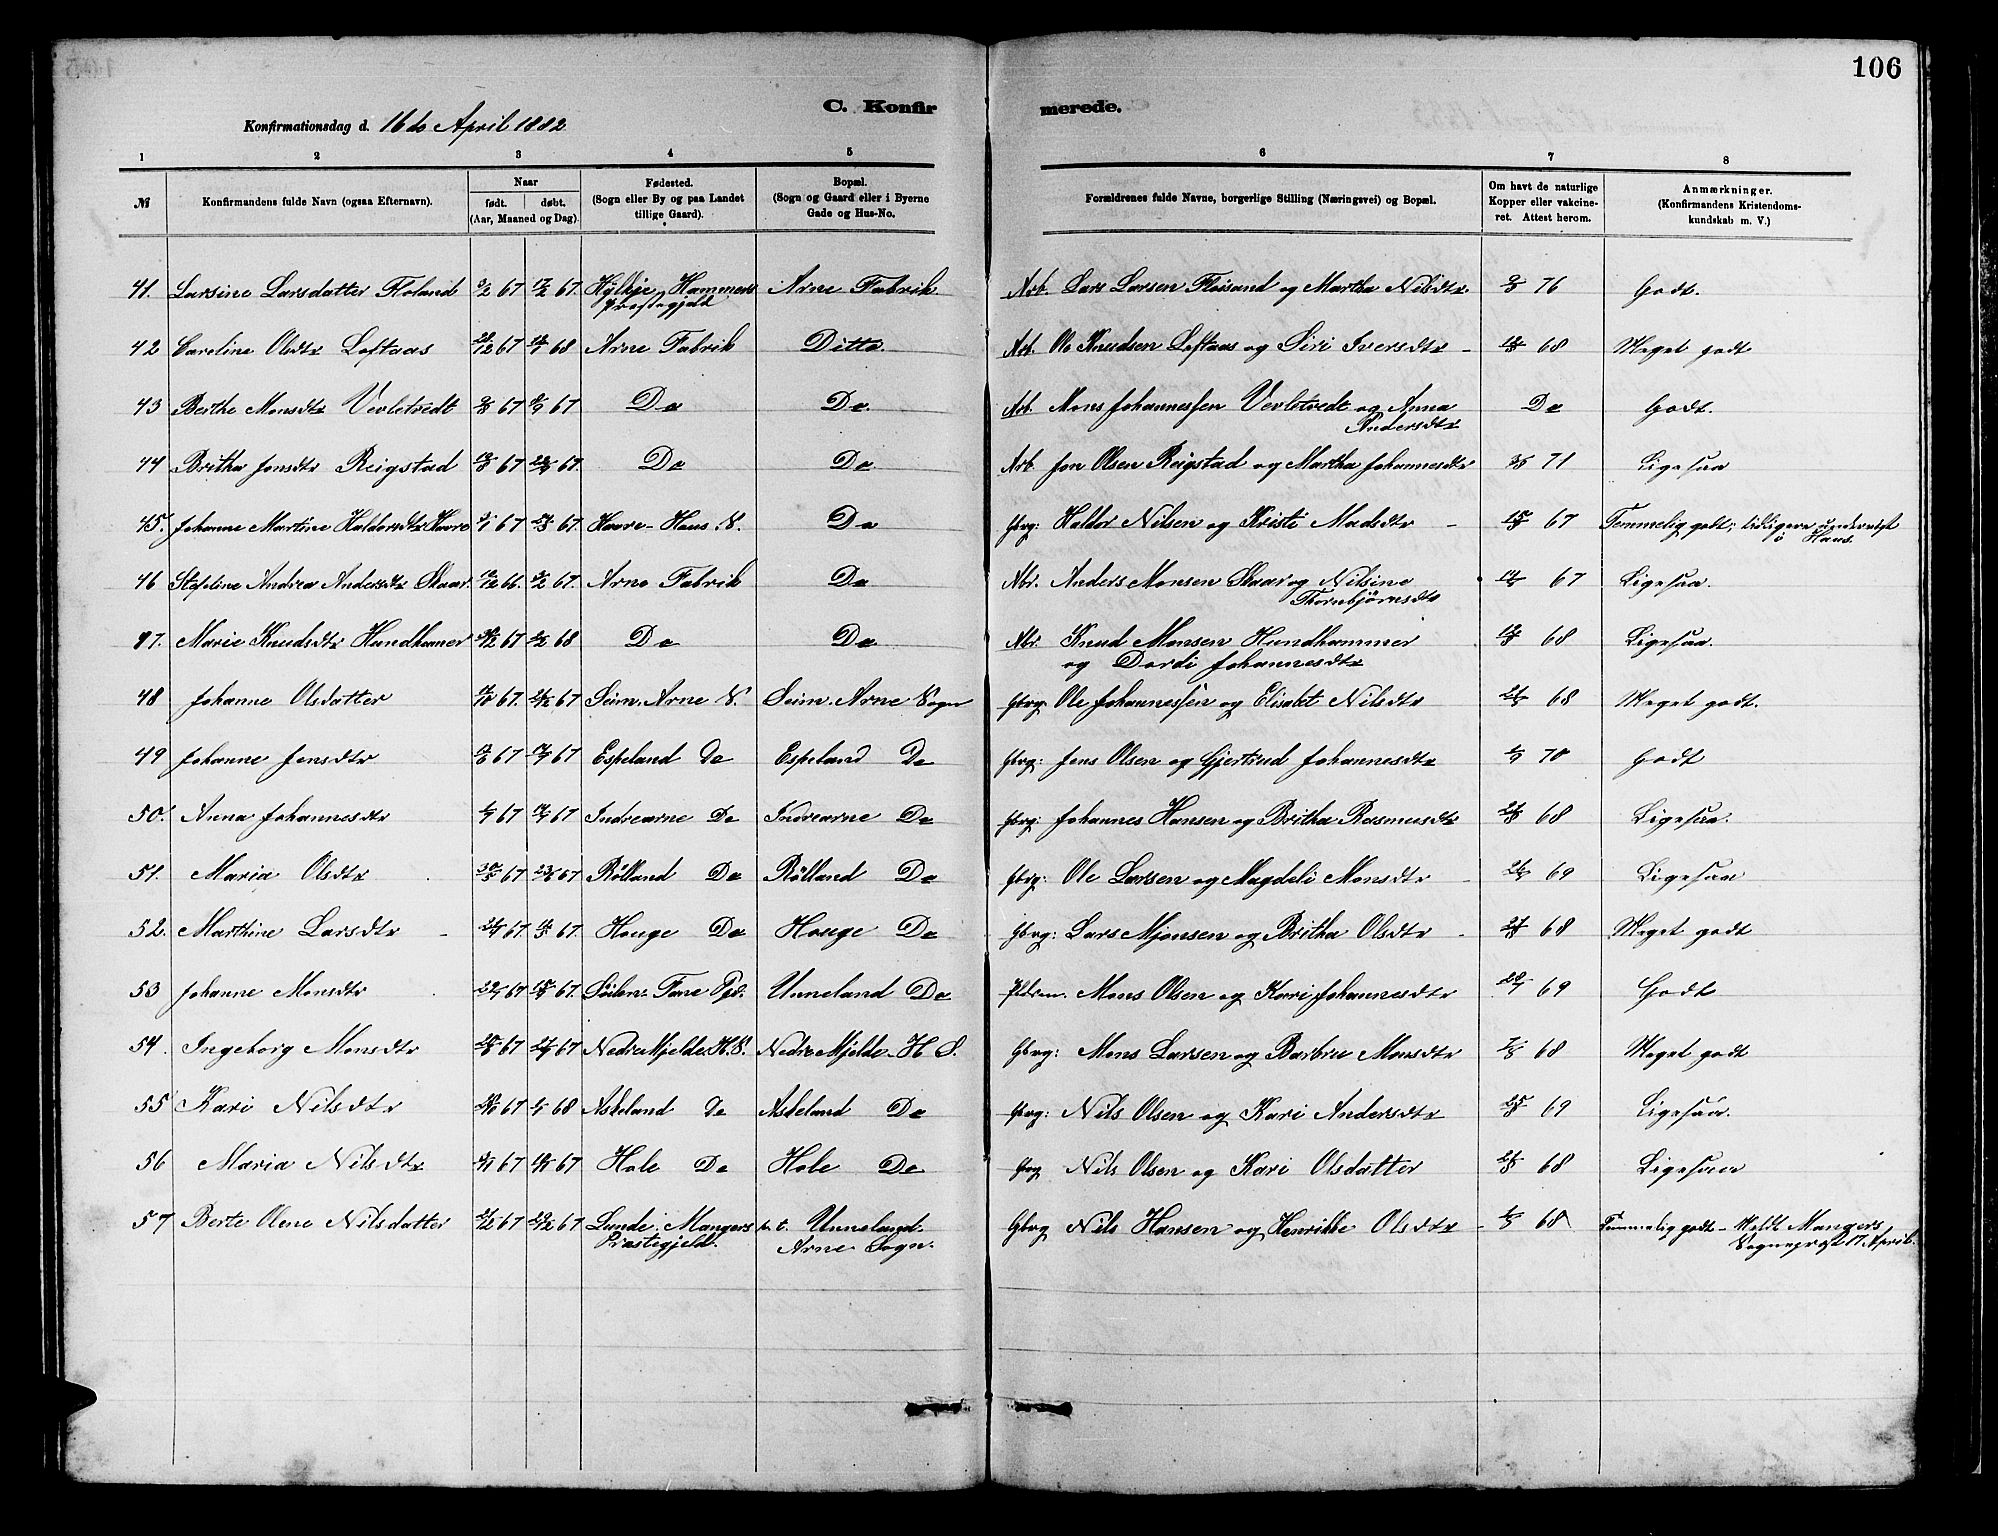 106
C. Konfirmerede.
Konfirmationsdag d. 16de April 1882
1 2 3 4 5 6 7 8
№ Konfirmandens fulde Navn (ogsaa Efternavn). Naar født. døbt. (Aar, Maaned og Dag). Fødested. (Sogn eller By og paa Landet tillige Gaard). Bopæl. (Sogn og Gaard eller i Byerne Gade og Hus-No. Forældrenes fulde Navne, borgerlige Stilling (Næringsvei) og Bopæl. Om havt de naturlige Kopper eller vakcineret. Attest herom. Anmærkninger. (Konfirmandens Kristendomskundskab m. V.)
41. Larsine Larsdatter 67 67. Hammers Præstegjeld Arne Fabrik Arb. Lars Larsen Fløisand og Martha Nilsdtr. 76 Godt.
42 Caroline Olsdtr Loftaas 67 68 Arne Fabrik Ditto. Arb. Ole Knudsen Loftaas og Siri Iversdtr 68 Meget godt
43 Berthe Monsdtr Vevletvedt 67 67 Do Do Arb. Mons Johannessen Vevletvedt og Anna Andersdtr Do Godt.
44 Britha Jonsdtr Reigstad 67 67. Do Do Arb. Jon Olsen Reigstad og Martha Johannesdtr 71 Ligesaa
45. Johanne Martine Haldorsdtr Havre 67 67. Havre - Haus S. Do Gbrg: Haldor Nilsen og Kristi Madsdtr 67 Temmelig godt; tidligere undervist i Haus.
46 Stefeline Andrea Andersdtr Skaar. 66. 67. Arne Fabrik Do Abr. Anders Monsen Skaar og Nilsine Thorbjørnsdtr 67 Ligesaa.
47. Marie Knudsdtr Hundhamer 67 68 Do Do Abr. Knud Monsen Hundhammer og Dordi Johannesdtr 68 Ligesaa.
48 Johanne Olsdatter 67. 67 Seim. Arne S. Seim. Arne Sogn Gbrg: Ole Johannessen og Elisabet Nilsdtr 68 Meget godt.
49 Johanne Jensdtr 67 67 Espeland Do Espeland Do Gbrg: Jens Olsen og Gjertrud Johannesdtr 70 Godt
50. Anna Johannesdtr 67 67 Indrearne Do Indrearne Do Gbrg: Johannes Hansen og Britha Rasmusdtr 68 Ligesaa.
51. Maria Olsdtr 67 67 Rølland Do Rølland Do Gbrg: Ole Larsen og Magdeli Monsdtr 69 Ligesaa
52. Marthine Larsdtr 67. 67. Houge Do Houge Do Gbrg: Lars Monsen og Britha Olsdtr 68 Meget godt
53 Johanne Monsdtr 67 67. Fane Pgd. Unneland Do Mons Olsen og Kari Johannesdtr 69 Godt
54. Ingeborg Monsdtr 67 67 Nedre Mjelde. H. S. Nedre Mjelde - H S. Gbrg: Mons Larsen og Barbru Monsdtr 68 Meget godt
55 Kari Nilsdtr 67 68 Askeland Do Askeland Do Gbrg: Nils Olsen og Kari Andersdtr 69 Ligesaa.
56 Maria Nilsdtr 67 67 Hole Do Hole Do Gbrg Nils Olsen og Kari Olsdatter 68 Ligesaa
57 Berte Oline Nilsdatter 67 67 Lunde, Mangers Præstegjeld. p. t. Unneland. Arne Sogn. Gbrg Nils Hansen og Henrikke Olsdtr 68 Temmelig godt - Meldt Mangers Sognepræst 17 April.